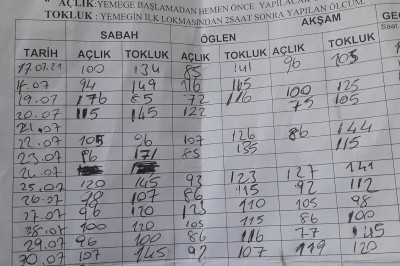 * AÇLIK:YEMEĞE BAŞLAMADAN HEMEN ÖNCE YAPILACAK
TOKLUK : YEMEĞİN İLK LOKMASINDAN 2SAAT SONRA YAPILAN ÖLÇÜM.
SABAH ÖĞLEN AKŞAM GE
TARİH AÇLIK TOKLUK AÇLIK TOKLUK AÇLIK TOKLUK Saat
17.07.21 100 134 85 141 96 105
94 149 116 165
19.07 176 85 72 116 100 125
20.07 115 145 122 75 105
21.07
22.07 105 96 107 126 86 144
23.07 86 171 85 135 115
24.07
25.07 120 145 93 123 127 141
26.07 78 107 86 115 92 112
27.07 96 120 123 110 105 98
28.07 100 120 105 115 86 100
29.07 96 100 86 116 77 145
30.07 107 145 92 107 119 120